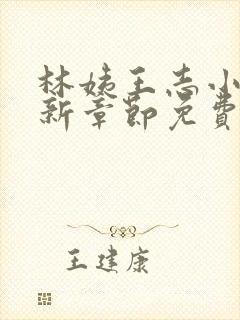 林姨王志小
新章節免費
王建康